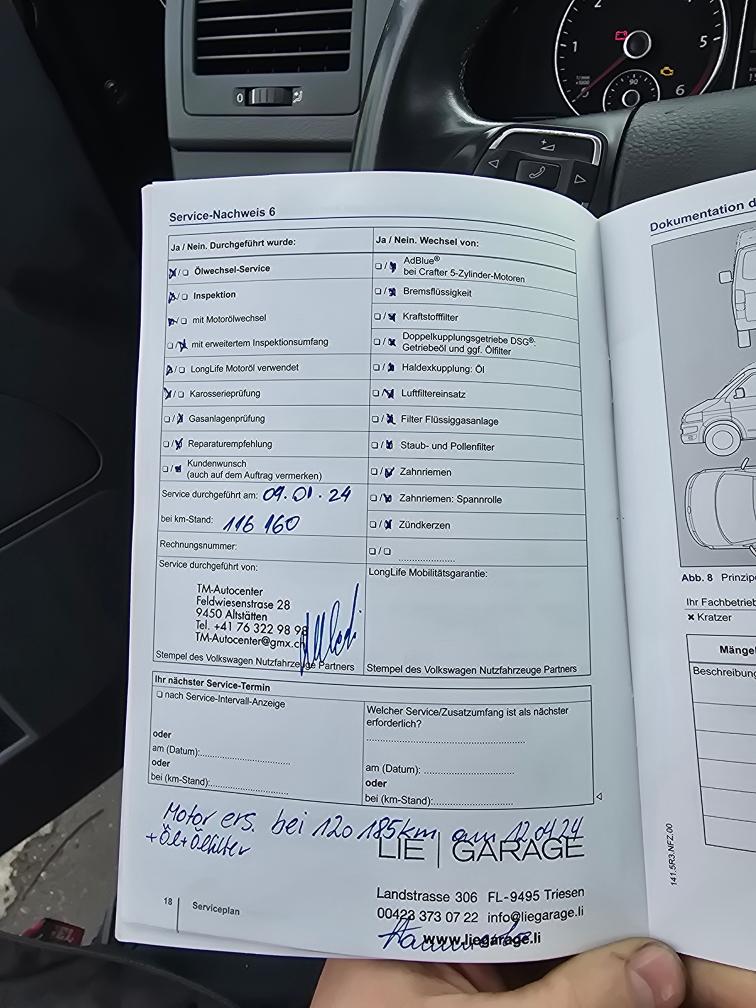 1
2
5
6
90
0
Service-Nachweis 6
Ja / Nein. Durchgeführt wurde:
Ölwechsel-Service
Inspektion
mit Motorölwechsel
mit erweitertem Inspektionsumfang
LongLife Motoröl verwendet
Karosserieprüfung
Gasanlagenprüfung
Reparaturempfehlung
Kundenwunsch
(auch auf dem Auftrag vermerken)
Service durchgeführt am: 09.01.24
bei km-Stand: 116 160
Rechnungsnummer:
Service durchgeführt von:
TM-Autocenter
Feldwiesenstrasse 28
9450 Altstätten
Tel. +41 76 322 98 98
TM-Autocenter@gmx.ch
Stempel des Volkswagen Nutzfahrzeuge Partners
Ja / Nein. Wechsel von:
AdBlue®
bei Crafter 5-Zylinder-Motoren
Bremsflüssigkeit
Kraftstofffilter
Doppelkupplungsgetriebe DSG®:
Getriebeöl und ggf. Ölfilter
Haldexkupplung: Öl
Luftfiltereinsatz
Filter Flüssiggasanlage
Staub- und Pollenfilter
Zahnriemen
Zahnriemen: Spannrolle
Zündkerzen
LongLife Mobilitätsgarantie:
Stempel des Volkswagen Nutzfahrzeuge Partners
Ihr nächster Service-Termin
nach Service-Intervall-Anzeige
oder
am (Datum):
oder
bei (km-Stand):
Welcher Service/Zusatzumfang ist als nächster
erforderlich?
am (Datum):
oder
bei (km-Stand):
Motor ers. bei 120 185km am 12.04.24
+Öl+Ölfilter
LIE | GARAGE
Landstrasse 306 FL-9495 Triesen
00423 373 07 22 info@liegarage.li
www.liegarage.li
18 Serviceplan
Dokumentation d
Abb. 8 Prinzip
Ihr Fachbetrieb
× Kratzer
Mängel
Beschreibung
141.5R3.NFZ.00